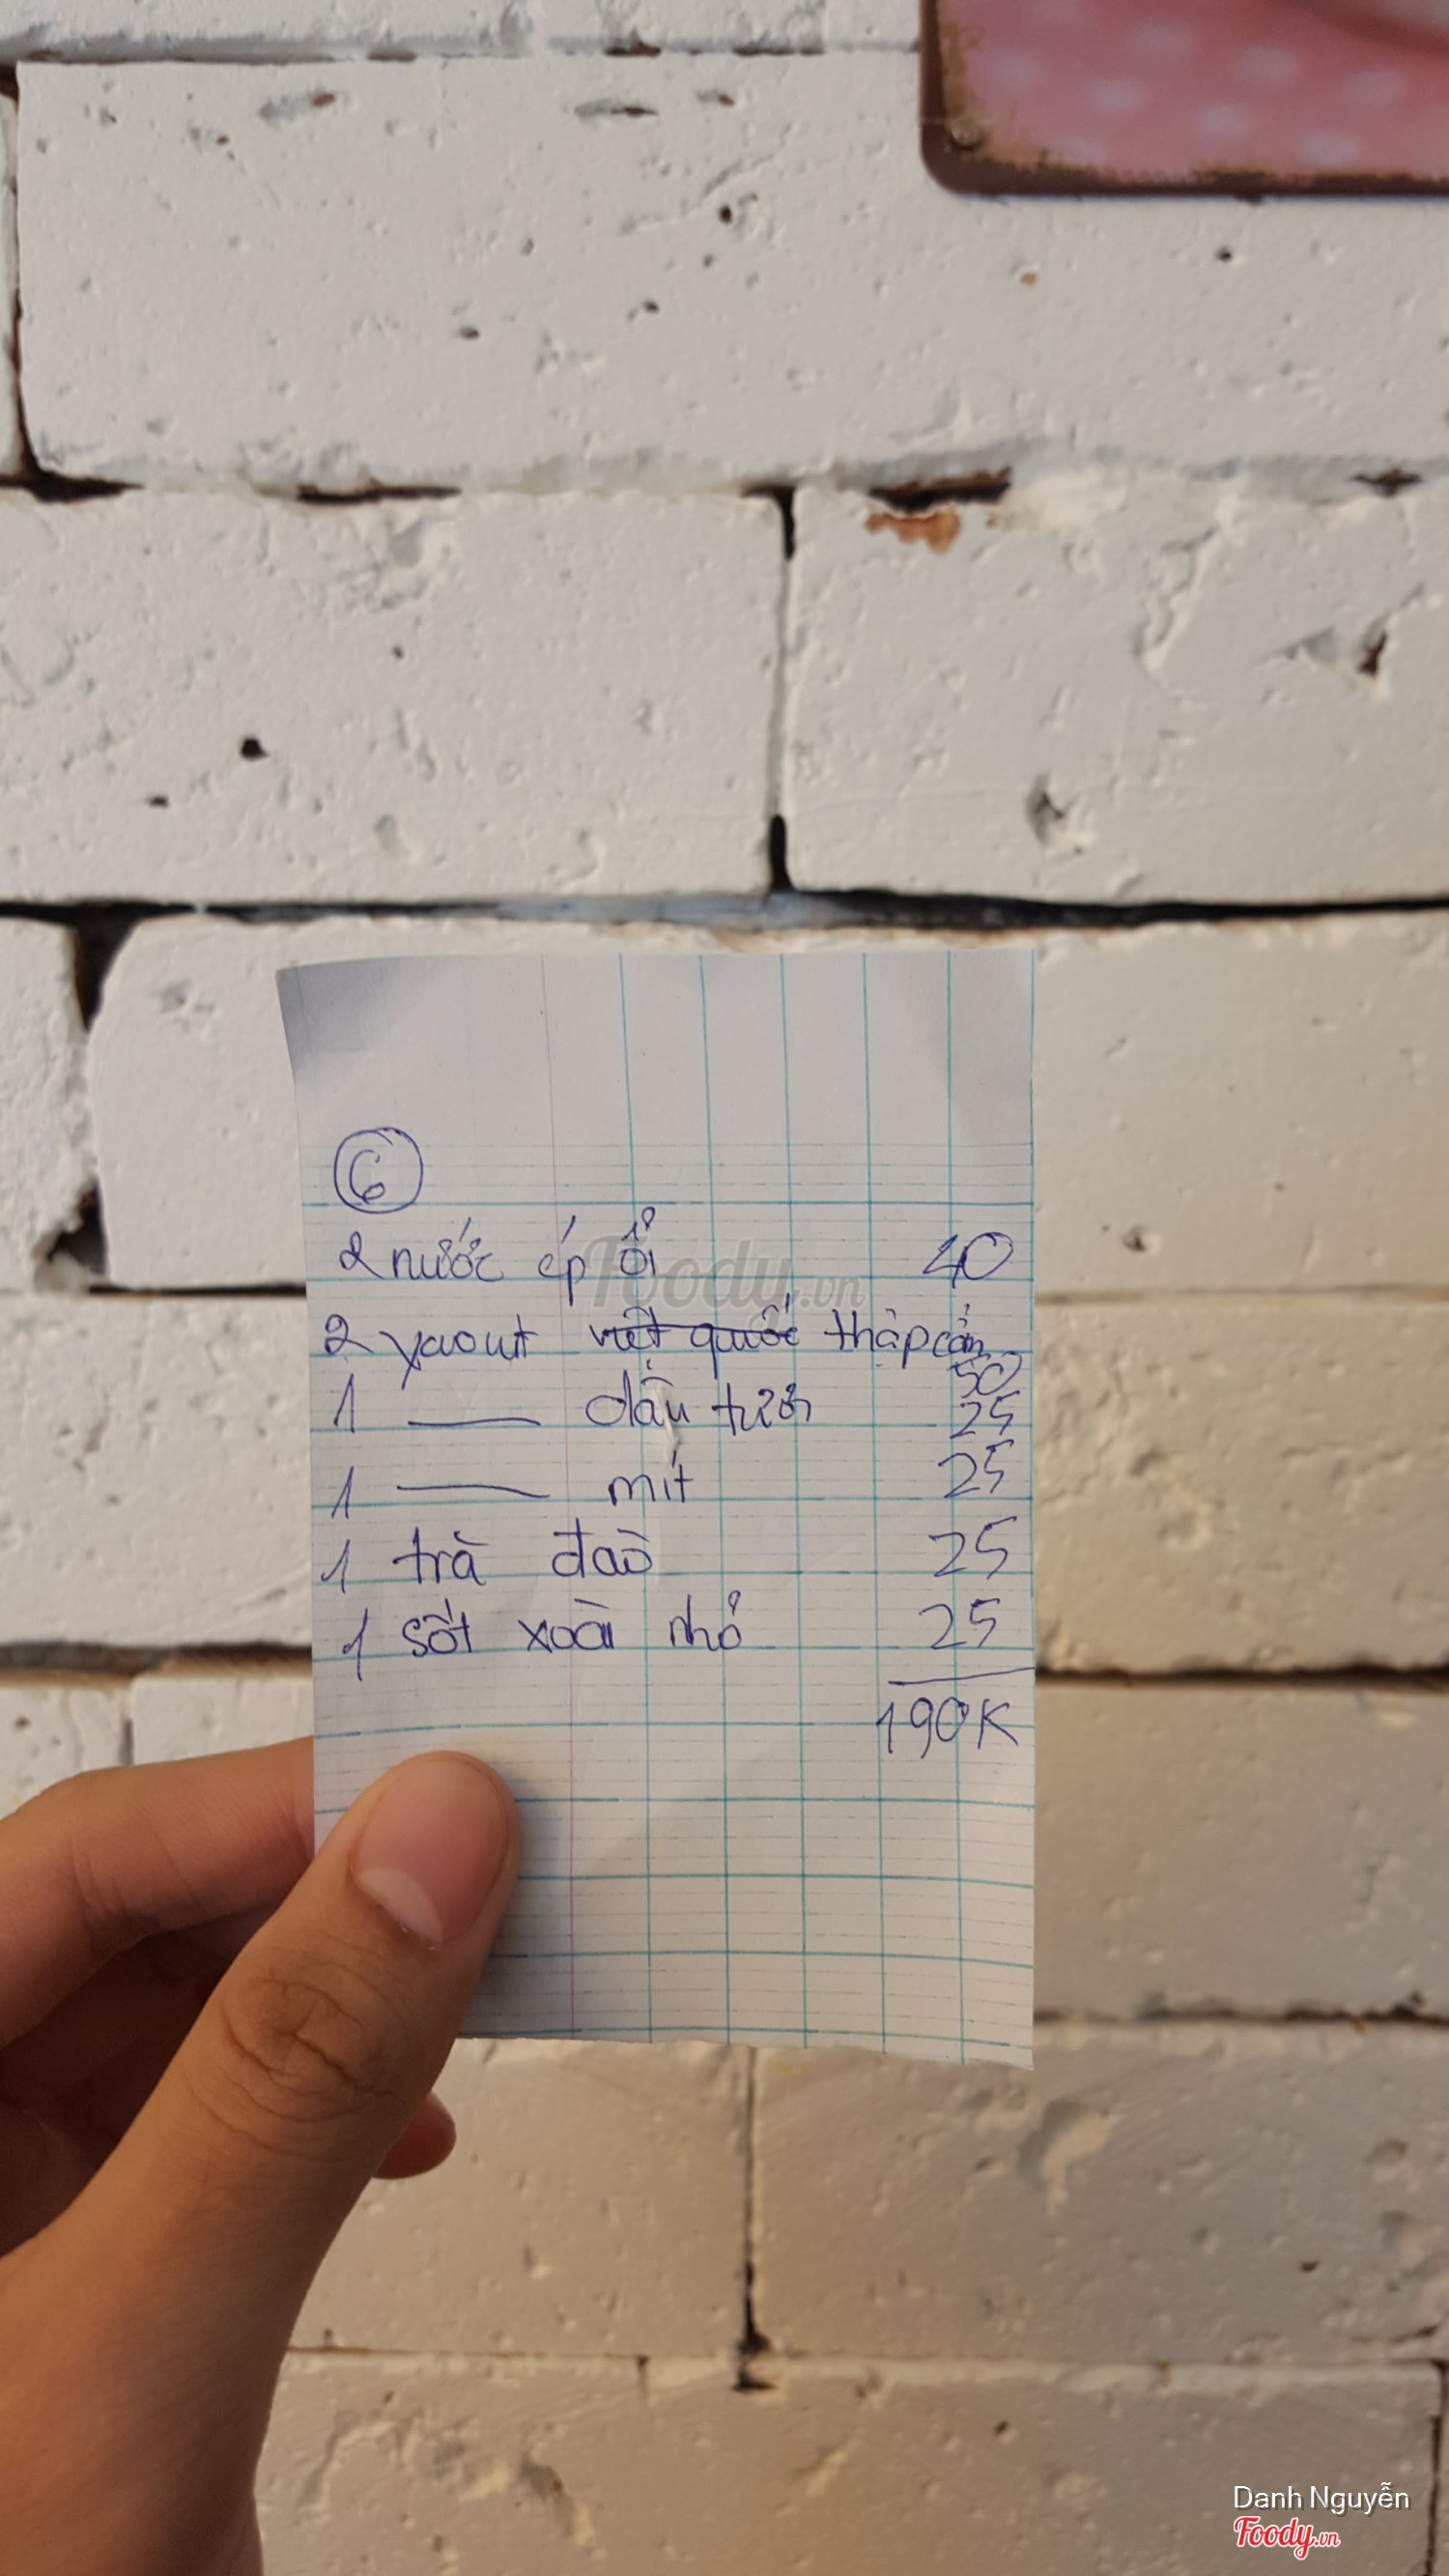 6
2 nước ép ổi 40
2 yaout việt quất thập cẩm 50
1 —— dâu tươi 25
1 —— mít 25
1 trà đào 25
1 sốt xoài nhỏ 25
190K
Foody.vn
Danh Nguyễn
Foody.vn